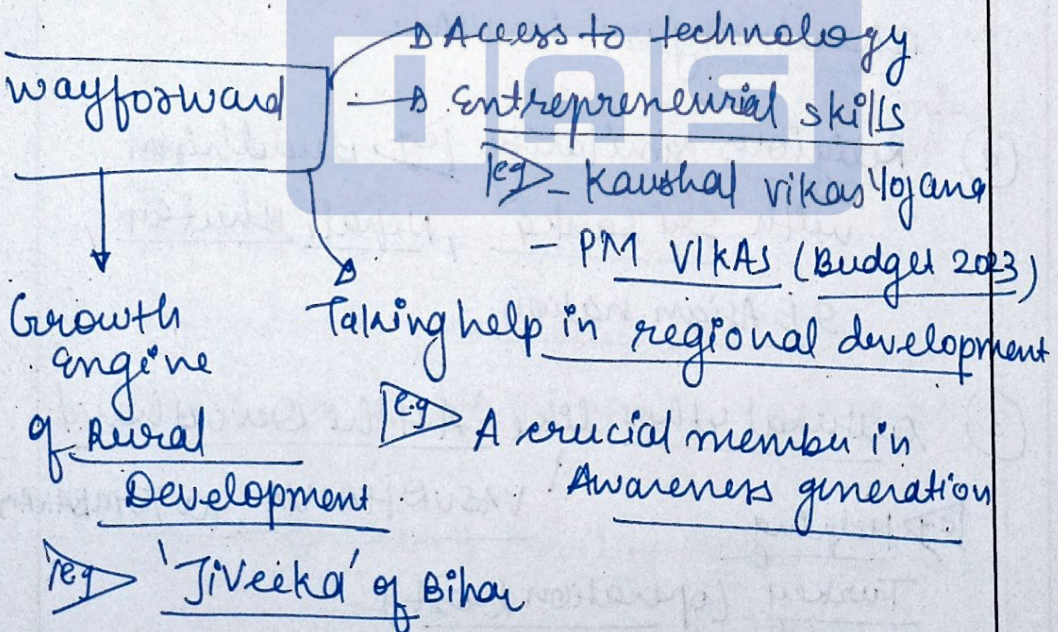 Access to technology
wayforward
Entrepreneurial skills
eg - Kaushal Vikas Yojana
- PM VIKAS (Budget 2023)
Growth
Engine
of Rural
Development
eg 'JiVeeka' of Bihar
Taking help in regional development
e.g A crucial member in
Awareness generation.
ias